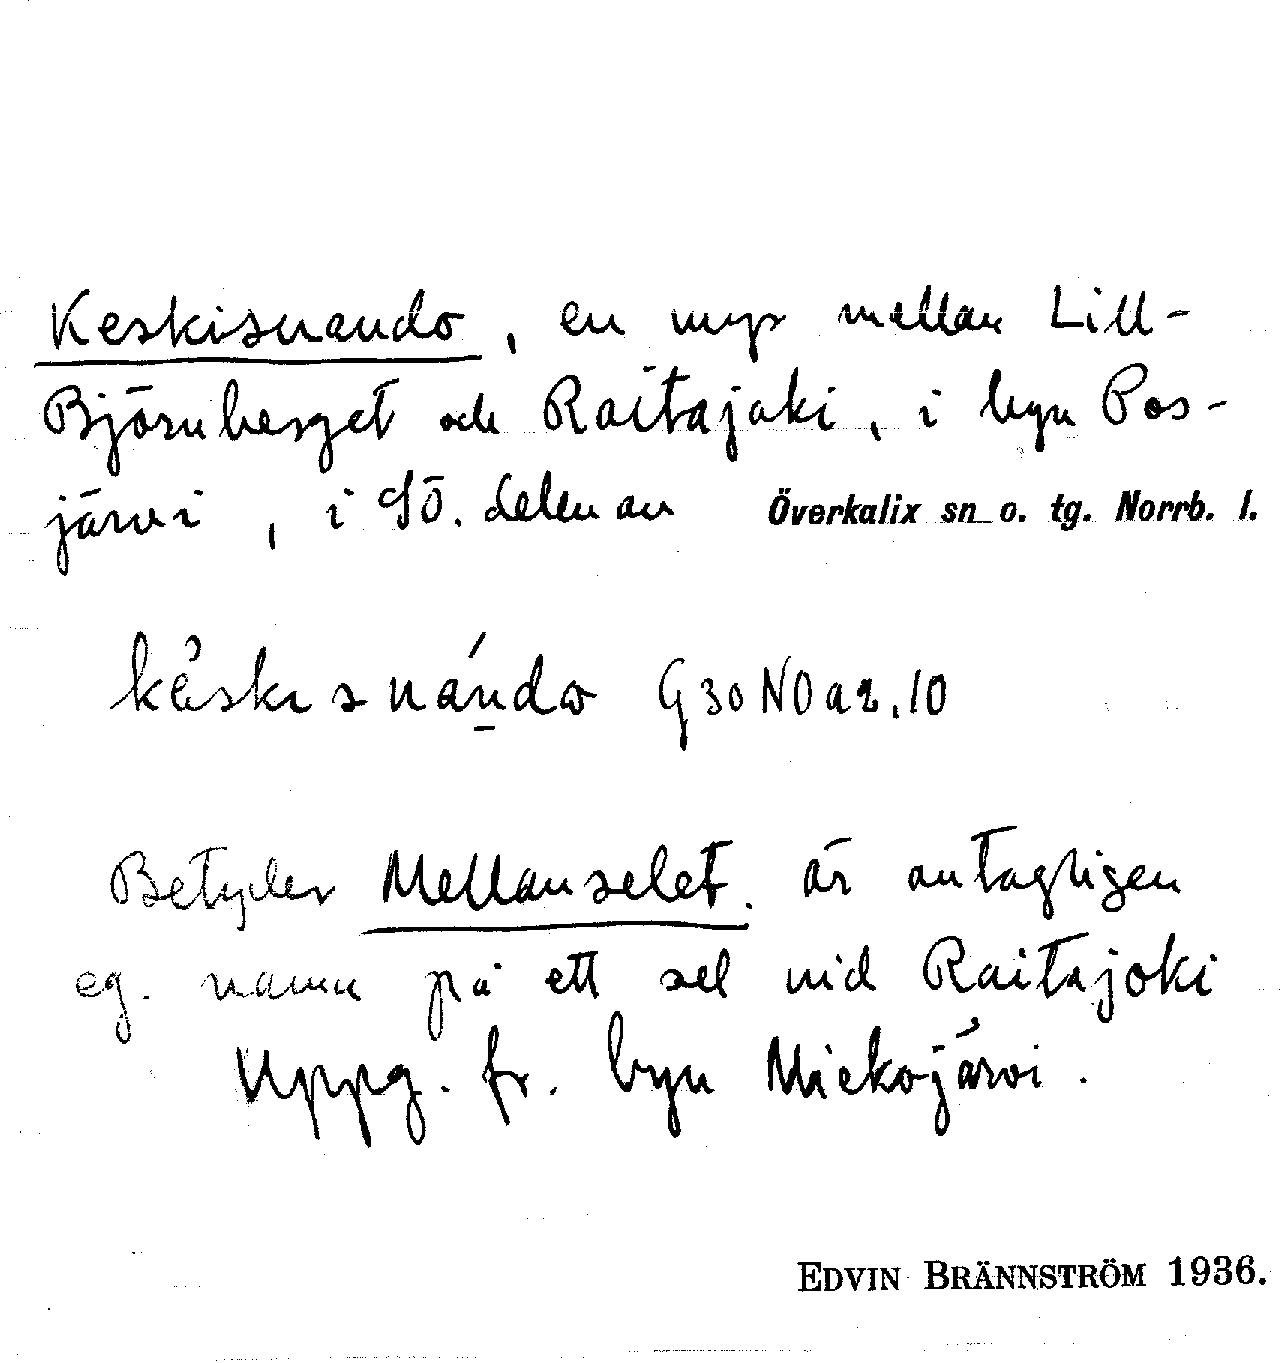 Keskisuando, en myr mellan Lill-
Björnberget och Raitajoki, i byn Pos-
järvi, i SÖ. delen av Överkalix sn o. tg. Norrb. l.
G30NOa2.10
Betyder Mellanselet. är antagligen
eg. namn på ett sel vid Raitajoki
Uppg. fr. byn Miekojärvi.
EDVIN BRÄNNSTRÖM 1936.